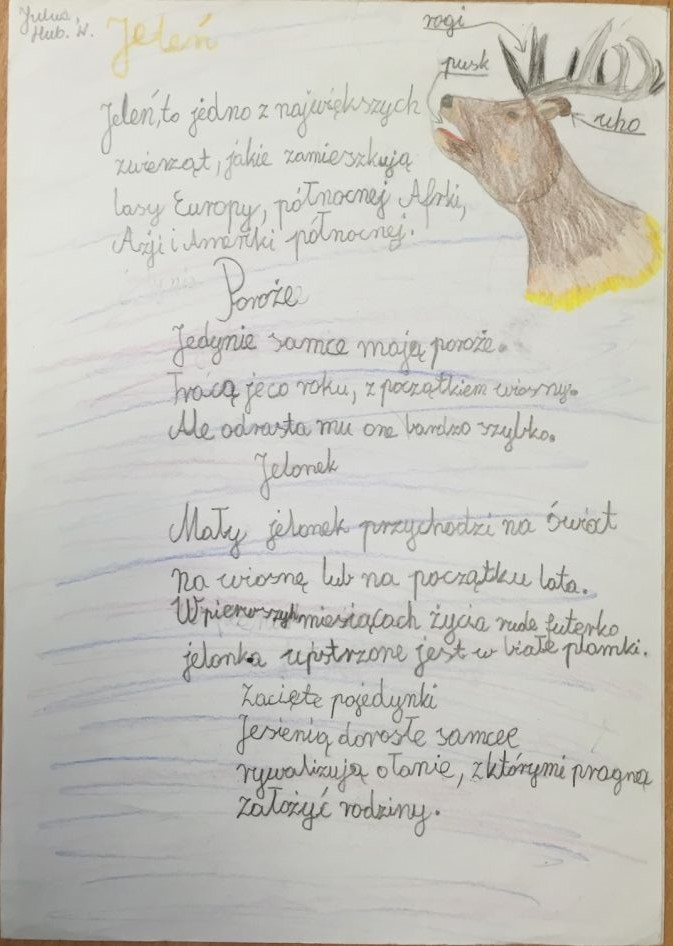 Julia,
Hub. W.
Jeleń
rogi
pusk
ucho
Jeleń, to jedno z największych
zwierząt, jakie zamieszkują
lasy Europy, północnej Afrki,
Azji i Ameriki północnej.
Poroże
Jedynie samce mają poroże.
Tracą je co roku, z początkiem wiosny.
Ale odrasta mu one bardzo szybko.
Jelonek
Mały jelonek przychodzi na świat
na wiosnę lub na początku lata.
W pierwszych miesiącach życia rude futerko
jelonka upstrzone jest w białe plamki.
Zacięte pojedynki
Jesienią dorosłe samcee
rywalizują o łanie, z którymi pragną
założyć rodziny.